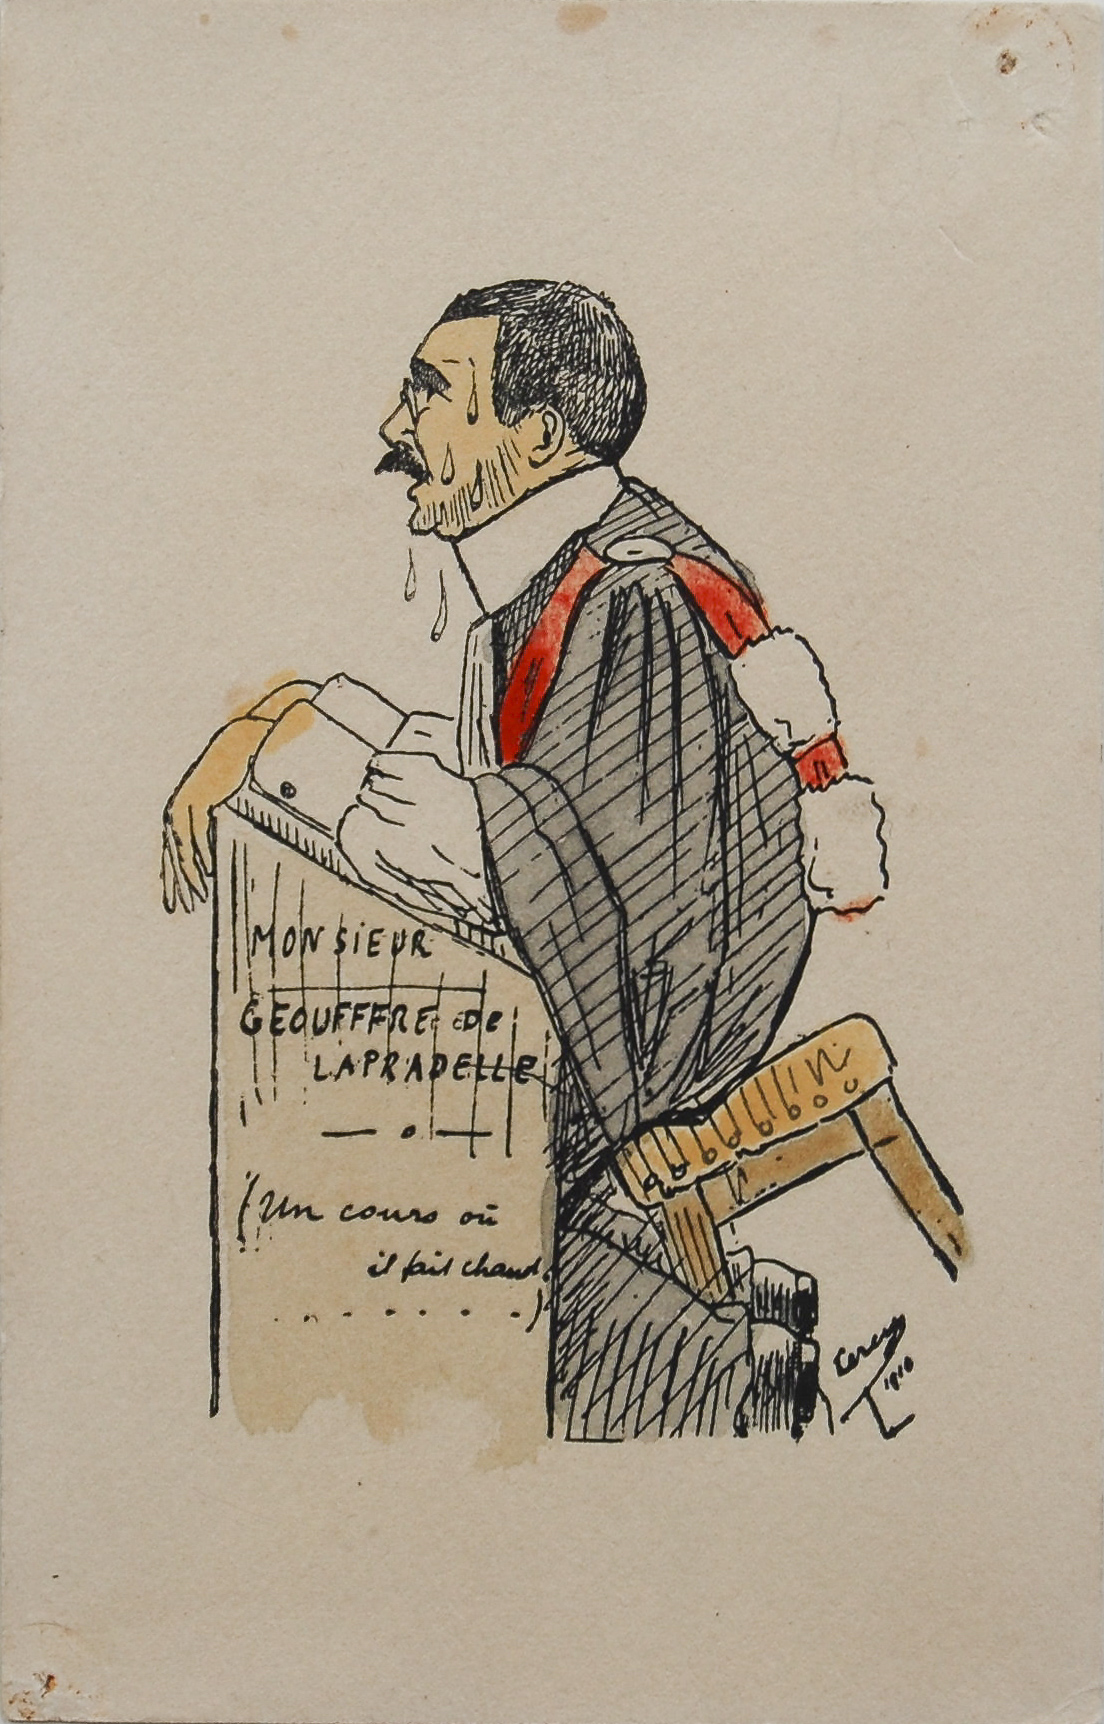 MONSIEUR
GEOUFFFRE De
LAPRADELLE
(Un cours où
il fait chaud,
. . . . . . .)
1910